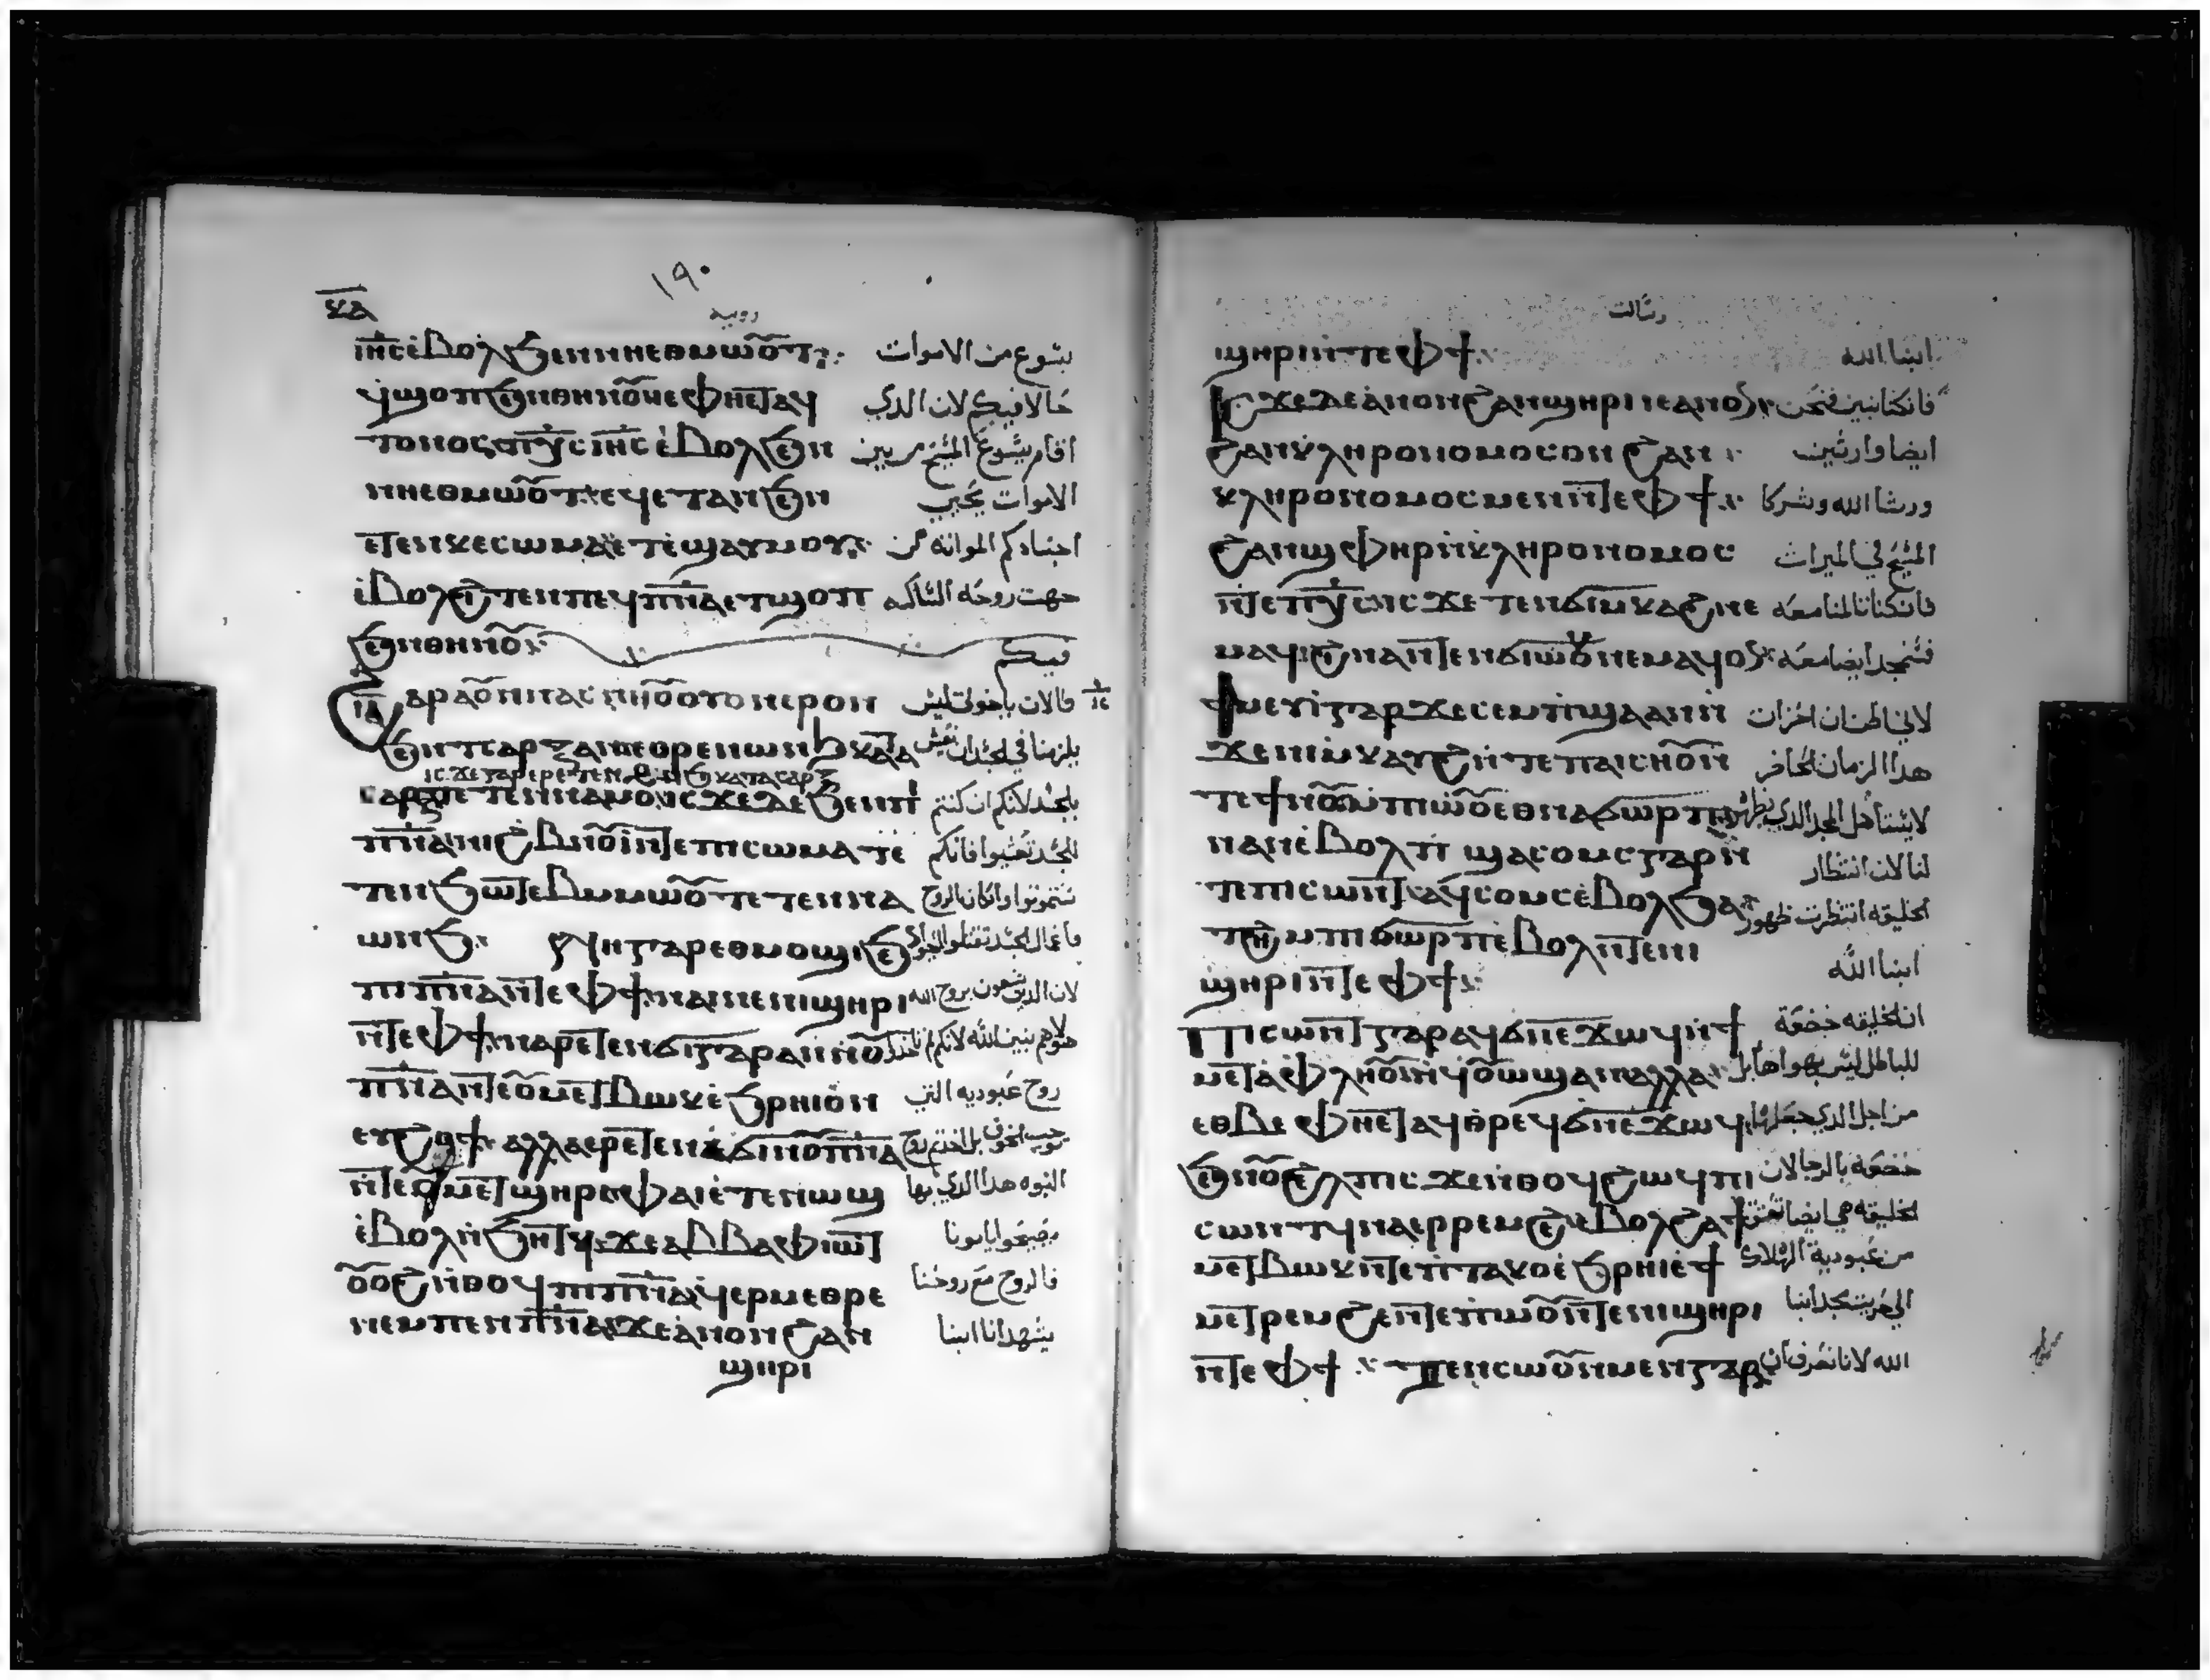 ١٩٠
ⲕⲁ
روميه
ⲓⲏⲥ ⲉⲃⲟⲗ ϧⲉⲛ ⲛⲏⲉⲑⲙⲱⲟⲩⲧ يسوع من الاموات
ϥϣⲟⲡ ϧⲉⲛ ⲑⲏⲛⲟⲩ ⲛⲉ ⲫⲏⲉⲧⲁϥ حالا فيكم لان الذي
ⲧⲟⲩⲛⲟⲥ ⲡⲭⲥ ⲓⲏⲥ ⲉⲃⲟⲗ ϧⲉⲛ اقام يسوع المسيح من بين
ⲛⲏⲉⲑⲙⲱⲟⲩⲧ ⲉϥⲉⲧⲁⲛϧⲉⲛ الاموات يحيي
ⲉⲧⲉⲛⲕⲉⲥⲱⲙⲁ ⲉⲧⲉϣⲁⲩⲙⲟⲩ اجسادكم المواته من
ⲉⲃⲟⲗϩⲓⲧⲉⲛ ⲡⲉϥⲡⲛⲁ ⲉⲧϣⲟⲡ جهت روحه الساكنه
ϧⲉⲛ ⲑⲏⲛⲟⲩ فيكم
ⲁⲣⲁ ⲟⲩⲛ ⲛⲁⲥⲛⲏⲟⲩ ⲟⲩⲟⲛ ⲉⲣⲟⲛ فالان ياخوتي ليس
ϧⲉⲛ ⲧⲥⲁⲣⲝ ⲁⲛ ⲉⲑⲣⲉⲛⲱⲛϧ ⲕⲁⲧⲁ يلزمنا في الجسد ان نعيش
ⲓⲥϫⲉ ⲅⲁⲣ ⲉⲣⲉⲧⲉⲛⲱⲛϧ ⲕⲁⲧⲁ ⲥⲁⲣⲝ
ⲥⲁⲣⲝ ⲧⲉⲧⲉⲛⲛⲁⲙⲟⲩ ⲓⲥϫⲉ ⲇⲉ ϧⲉⲛ ⲡⲓ بالجسد لانكم ان كنتم
ⲡⲛⲁ ⲛⲓϩⲃⲏⲟⲩⲓ ⲛⲧⲉ ⲡⲓⲥⲱⲙⲁ ⲧⲉ للجسد تعيشوا فانكم
ⲧⲉⲛϧⲱⲧⲉⲃ ⲙⲙⲱⲟⲩ ⲧⲉⲧⲉⲛⲛⲁ ستموتوا وانكان بالروح
ⲱⲛϧ ⲛⲏ ⲅⲁⲣ ⲉⲑⲙⲟϣⲓ ϧⲉⲛ
ⲡⲓⲡⲛⲁ ⲛⲧⲉ ⲫϯ ⲛⲁⲓ ⲛⲉ ⲛⲓϣⲏⲣⲓ
ⲛⲧⲉ ⲫϯ ⲛⲁⲣⲉⲧⲉⲛϭⲓ ⲅⲁⲣ ⲁⲛ ⲛⲟⲩ
ⲡⲛⲁ ⲛⲧⲉ ⲟⲩⲙⲉⲧⲃⲱⲕ ⲉϧⲣⲏⲓ ⲟⲛ روح عبوديه التي
ⲉⲩϩⲟϯ ⲁⲗⲗⲁ ⲉⲣⲉⲧⲉⲛϭⲓ ⲛⲟⲩⲡⲛⲁ
ⲛⲧⲉ ⲟⲩⲙⲉⲧϣⲏⲣⲓ ⲫⲁⲓ ⲉⲧⲉⲛⲱϣ البنوه هذا الذي بها
ⲉⲃⲟⲗ ⲛϧⲏⲧϥ ϫⲉ ⲁⲃⲃⲁ ⲫⲓⲱⲧ
ⲟⲩⲟϩ ⲛⲑⲟϥ ⲡⲓⲡⲛⲁ ϥⲉⲣⲙⲉⲑⲣⲉ فالروح مع روحنا
ⲛⲉⲙ ⲡⲉⲛⲡⲛⲁ ϫⲉ ⲁⲛⲟⲛ ϩⲁⲛ يشهد اننا ابنا
ϣⲏⲣⲓ
رسالت
ϣⲏⲣⲓ ⲛⲧⲉ ⲫϯ ابنا الله
ⲓⲥϫⲉ ⲇⲉ ⲁⲛⲟⲛ ϩⲁⲛϣⲏⲣⲓ ⲓⲉ ⲁⲛⲟⲛ فان كنا بنين فنحن
ϩⲁⲛⲕⲗⲏⲣⲟⲛⲟⲙⲟⲥ ⲟⲛ ϩⲁⲛ ايضا وارثين
ⲕⲗⲏⲣⲟⲛⲟⲙⲟⲥ ⲙⲉⲛ ⲛⲧⲉ ⲫϯ ورثا الله وشركا
ϩⲁⲛϣⲫⲏⲣ ⲛⲕⲗⲏⲣⲟⲛⲟⲙⲟⲥ المسيح في الميراث
ⲛⲧⲉ ⲡⲭⲥ ⲓⲥϫⲉ ⲧⲉⲛϭⲓⲙⲕⲁϩ ⲛⲉ فان كنا تالمنا معه
ⲙⲁϥ ϩⲓⲛⲁ ⲛⲧⲉⲛϭⲓⲱⲟⲩ ⲛⲉⲙⲁϥ ⲟⲛ فسنمجد ايضا معه
ϯⲙⲉⲩⲓ ⲅⲁⲣ ϫⲉ ⲥⲉⲙⲡϣⲁ ⲁⲛ ⲛ لاني اظن ان احزات
ϫⲉ ⲛⲓⲙⲕⲁⲩϩ ⲛⲧⲉ ⲡⲁⲓⲥⲏⲟⲩ هذا الزمان الحاضر
ⲧⲉ ϯⲛⲟⲩ ⲙⲡⲓⲱⲟⲩ ⲉⲑⲛⲁϭⲱⲣⲡ لا يستاهل المجد الذي يظهر
ⲛⲁⲛ ⲉⲃⲟⲗ ⲡⲓϣⲁⲥⲟⲙⲥ ⲅⲁⲣ ⲛ لنا لان انتظار
ⲧⲉ ⲡⲓⲥⲱⲛⲧ ⲁϥⲥⲟⲙⲥ ⲉⲃⲟⲗϧⲁ الخليقه انتظرت ظهور
ⲧϩⲏ ⲙⲡϭⲱⲣⲡ ⲉⲃⲟⲗ ⲛⲧⲉ ⲛⲓ
ϣⲏⲣⲓ ⲛⲧⲉ ⲫϯ ابنا الله
ⲡⲓⲥⲱⲛⲧ ⲅⲁⲣ ⲁϥϭⲛⲉϫⲱϥ ⲛϯ ان الخليقه خضعة
ⲙⲉⲧⲉⲫⲗⲏⲟⲩ ⲛϥⲟⲩⲱϣ ⲁⲛ ⲁⲗⲗⲁ للباطل ليس بهواها بل
ⲉⲑⲃⲉ ⲫⲏⲉⲧⲁϥⲑⲣⲉϥϭⲛⲉϫⲱϥ من اجل الذي
ϧⲉⲛ ⲟⲩϩⲉⲗⲡⲓⲥ ϫⲉ ⲛⲑⲟϥ ϩⲱϥ ⲡⲓ خضعه بالرجا لان
ⲥⲱⲛⲧ ϥⲛⲁⲉⲣⲣⲉⲙϩⲉ ⲉⲃⲟⲗϩⲁ ϯ الخليقه هي ايضا تعتق
ⲙⲉⲧⲃⲱⲕ ⲛⲧⲉ ⲡⲧⲁⲕⲟ ⲉϧⲣⲏⲓ ⲉϯ من عبودية الهلاك
ⲙⲉⲧⲣⲉⲙϩⲉ ⲛⲧⲉ ⲡⲱⲟⲩ ⲛⲧⲉ ⲛⲓϣⲏⲣⲓ
ⲛⲧⲉ ⲫϯ ⲧⲉⲛⲥⲱⲟⲩⲛ ⲙⲉⲛ ⲅⲁⲣ الله لاننا نعرف ان